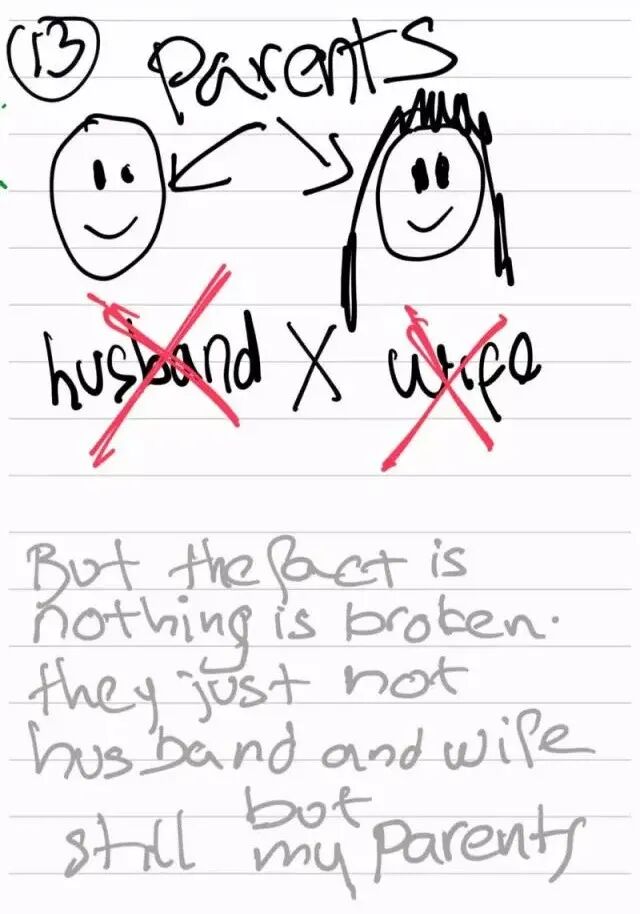 13
parents
husband X wife
But the fact is
nothing is broken.
they just not
husband and wife
but
still my parents